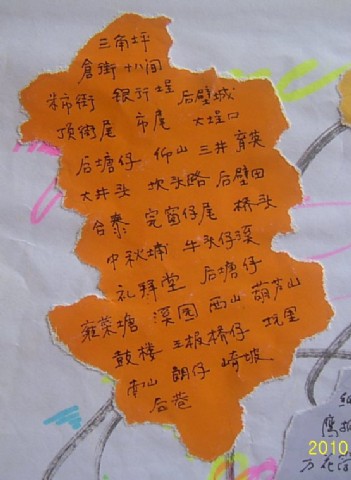 三角坪
倉街 十八间
米市街 银行埕 后壁城
顶街尾 市尾 大埕口
后塘仔 仰山 三井 育英
大井头 坎头路 后壁田
合泰 完窗仔尾 桥头
中秋埔 牛头仔溪
礼拜堂 后塘仔
蕹菜塘 溪园 西山 葫芦山
鼓楼 三板桥仔 坑里
南山 崩仔 崎坡
后巷
2010